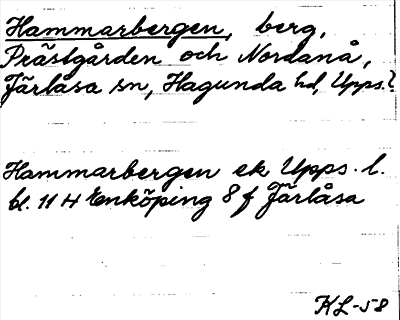 Hammarbergen, berg,
Prästgården och Nordanå,
Järlåsa sn, Hagunda hd, Upps. l.
Hammarbergen ek Upps. l.
bl. 11 H Enköping 8 f Järlåsa
KL-58